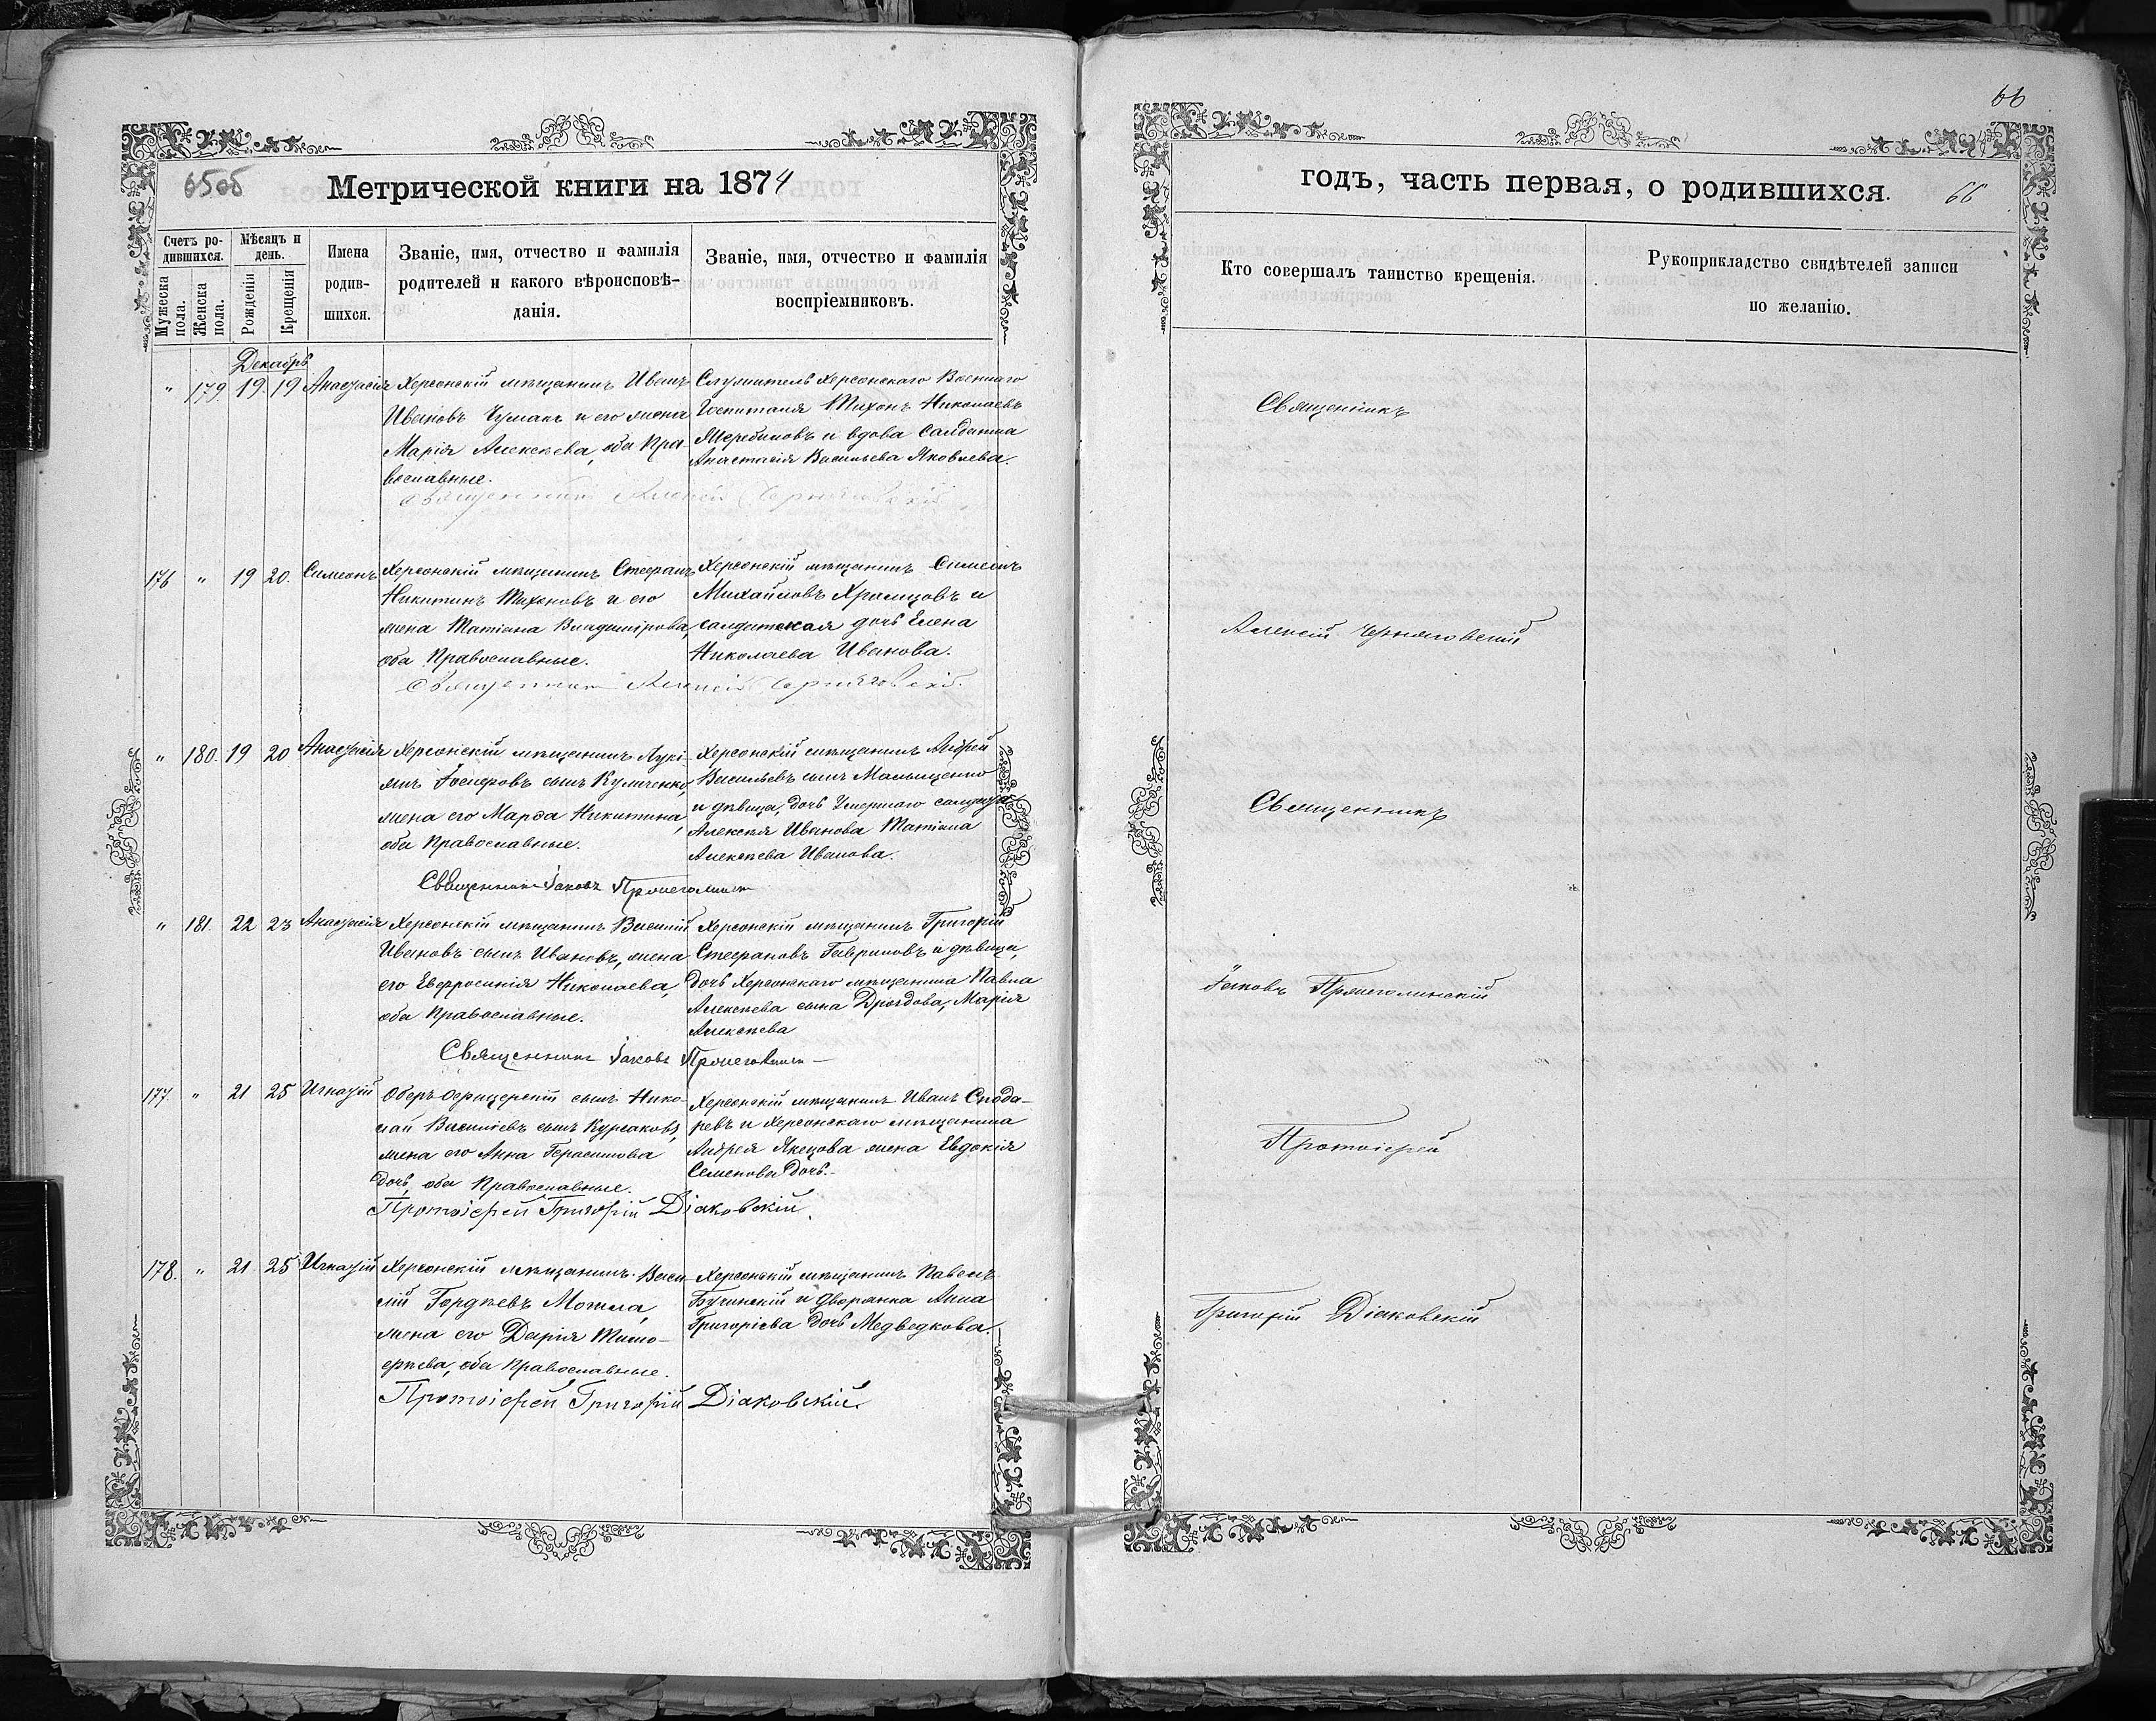 65об
Метрической книги на 1874
Счетъ ро-
дившихся.
Мужеска пола.
Женска пола.
Мѣсяцъ и
день.
Рожденія
Крещенія
Имена
родив-
шихся.
Званіе, имя, отчество и фамилія
родителей и какого вѣроисповѣ-
данія.
Званіе, имя, отчество и фамилія
воспріемниковъ.
Декабрь
" 179. 19. 19 Анастасія
Херсонскій мѣщанинъ Иванъ
Ивановъ Чумакъ и его жена
Марія Алексѣева, оба Пра-
вославные.
Служитель Херсонскаго Военнаго
Госпиталя Тихонъ Николаевъ
Жеребиловъ и вдова Салдатка
Анастасія Васильева Яковлева.
Священникъ Алексій Черняговскій
176 " 19 20. Симеонъ
Херсонскій мѣщанинъ Стефанъ
Никитинъ Тихоновъ и его
жена Татіана Владимірова,
оба Православные.
Херсонскій мѣщанинъ Симеонъ
Михайловъ Храмцовъ и
салдатская дочь Елена
Николаева Иванова.
Священник Алексій Черняговскій.
" 180. 19 20 Анастасія
Херсонскій мѣщанинъ Лукі-
янъ Іосифовъ сынъ Кумченко,
жена его Марфа Никитина,
оба Православные.
Херсонскій мѣщанинъ Андрей
Васильевъ сынъ Малыщенко
и дѣвица, дочь Умершаго салдата
Алексѣя Иванова Татіана
Алексѣева Иванова.
Священник Іаковъ
" 181. 22 23 Анастасія
Херсонскій мѣщанинъ Василій
Ивановъ сынъ Ивановъ, жена
его Евфросинія Николаева,
оба Православные.
Херсонскій мѣщанинъ Григорій
Стефановъ Гавриловъ и дѣвица,
дочь Херсонскаго мѣщанина Павла
Алексѣева сына Дроздова, Марія
Алексѣева
Священник Іаковъ
177. " 21 25 Игнатій
Оберъ-офицерскій сынъ Нико-
лай Василіевъ сынъ Курсаковъ,
жена его Анна Герасимова
дочь, оба Православные.
Херсонскій мѣщанинъ Иванъ Слода-
ревъ и Херсонскаго мѣщанина
Андрея Якецова жена Евдокія
Семенова дочь.-
Протоіерей Григорій Діаковскій.
178. " 21 25 Игнатій
Херсонскій мѣщанинъ Васи-
лій Гордѣевъ Могила,
жена его Дарія Тимо-
фѣева, оба Православные.
Херсонскій мѣщанинъ Павелъ
Бучинскій и дворянка Анна
Григоріева дочь Медведкова.
Протоіерей Григорій Діаковскій.
66
годъ, часть первая, о родившихся.
66
Кто совершалъ таинство крещенія.
Рукоприкладство свидѣтелей записи
по желанію.
Священникъ
Алексій Черняговскій
Священникъ
Іаковъ
Протоіерей
Григорій Діаковскій